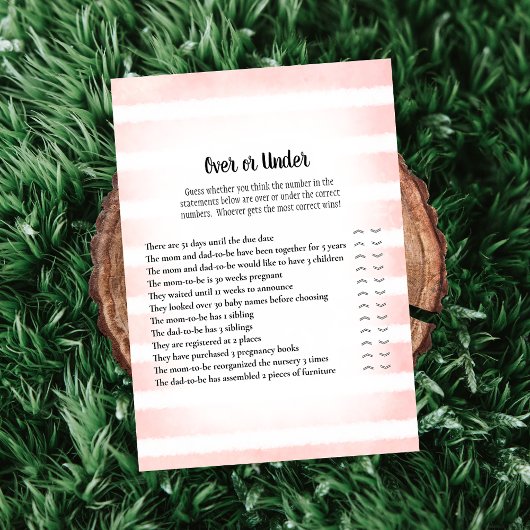 Over or Under
Guess whether you think the number in the
statements below are over or under the correct
numbers. Whoever gets the most correct wins!
There are 51 days until the due date
The mom and dad-to-be have been together for 5 years
The mom and dad-to-be would like to have 3 children
The mom-to-be is 30 weeks pregnant
They waited until 11 weeks to announce
They looked over 30 baby names before choosing
The mom-to-be has 1 sibling
The dad-to-be has 3 siblings
They are registered at 2 places
They have purchased 3 pregnancy books
The mom-to-be reorganized the nursery 3 times
The dad-to-be has assembled 2 pieces of furniture